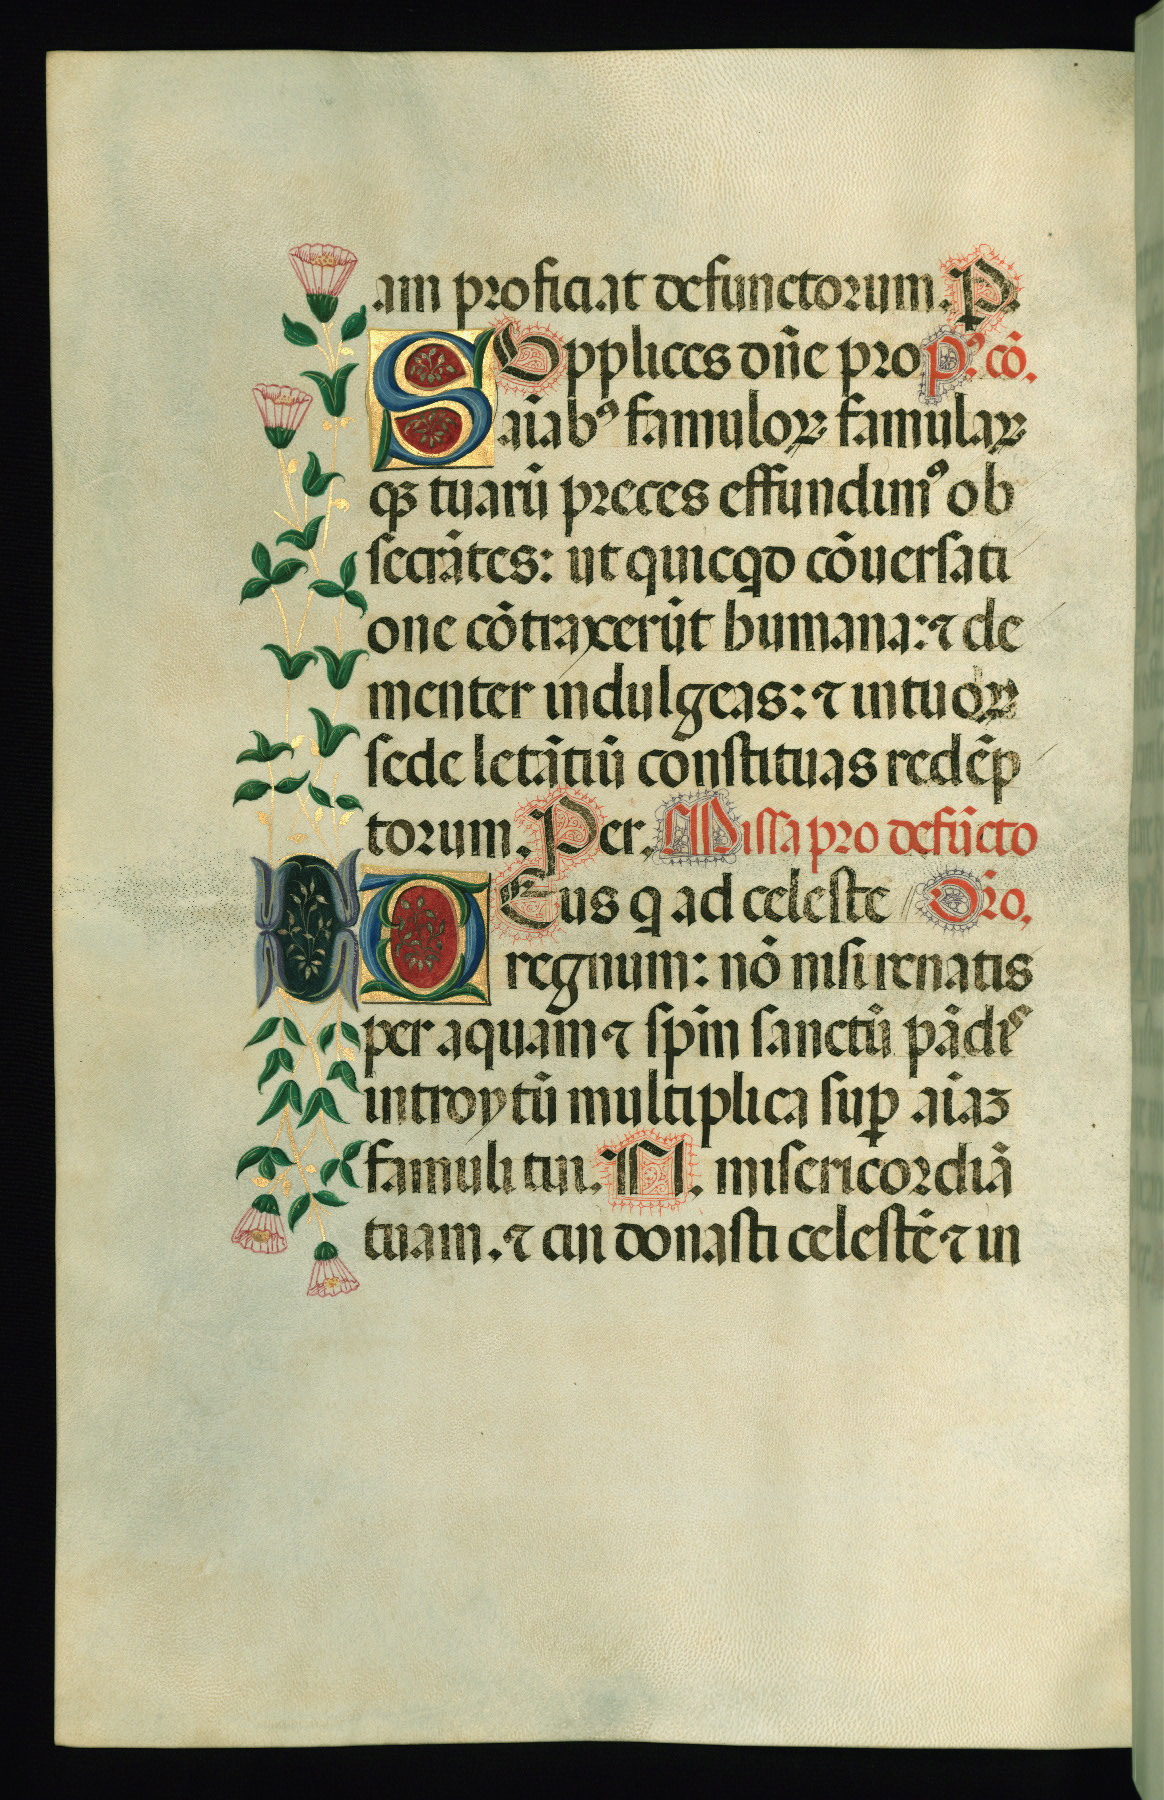 am proficiat defunctorum. P.
SUpplices dn̄e pro Pꝰ. cō.
aīabꝰ famuloꝝ famulaꝝ
qꝫ tuarū preces effundimꝰ ob
secrātes: ut quicqd cōuersati
one cōtraxerūt humana: ⁊ cle
menter indulgeas: ⁊ in tuoꝝ
sede letātiū constituas redēp
torum. Per. Missa pro defūcto
DEus q ad celeste Oro.
regnum: nō nisi renatis
per aquam ⁊ sp̄m sanctū pādis
introytū multiplica suꝑ aīaꝫ
famuli tui. N. misericordiā
tuam. ⁊ cui donasti celestē ⁊ in